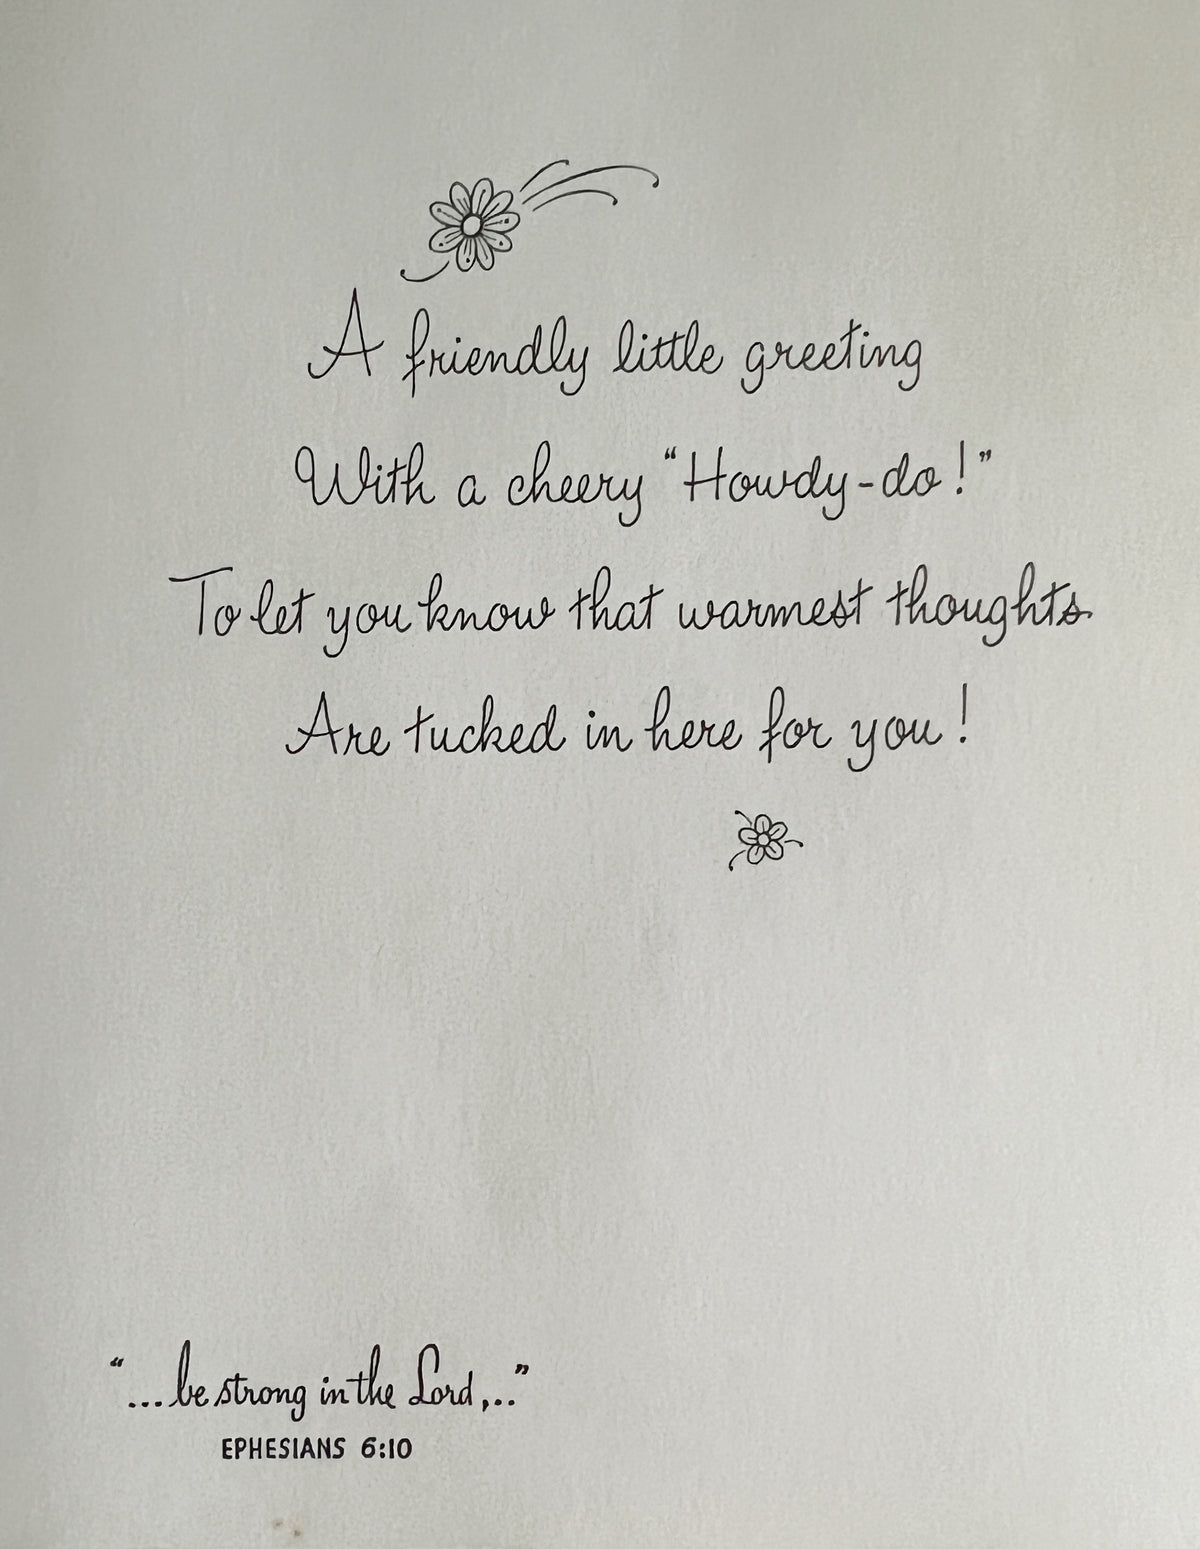 A friendly little greeting
With a cheery “Howdy-do!”
To let you know that warmest thoughts
Are tucked in here for you!
“...be strong in the Lord,..”
EPHESIANS 6:10